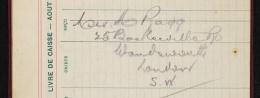 LIVRE DE CAISSE — AOUT
REÇU
25 Baskerville Rd
Wandsworth
London
S.W